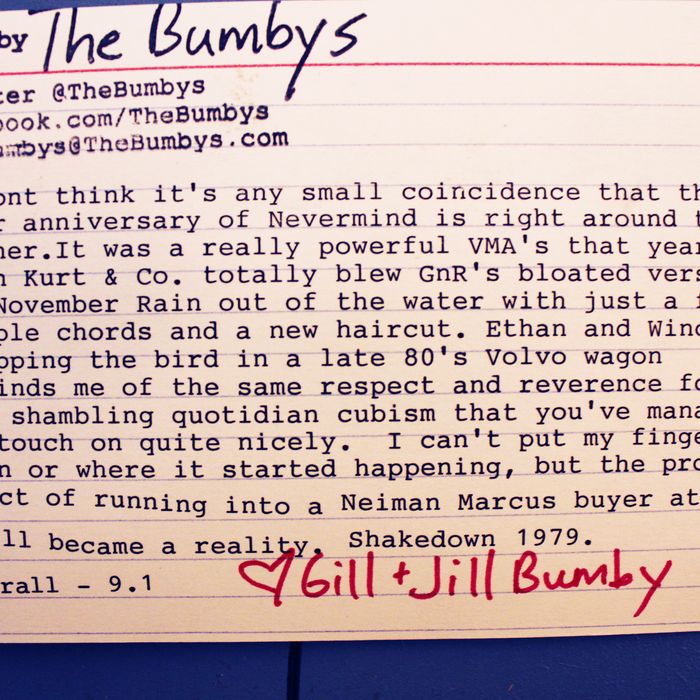 by The Bumbys
ter @TheBumbys
ook.com/TheBumbys
mbys@TheBumbys.com
ont think it's any small coincidence that th
r anniversary of Nevermind is right around t
ner.It was a really powerful VMA's that year
n Kurt & Co. totally blew GnR's bloated vers
November Rain out of the water with just a
ple chords and a new haircut. Ethan and Wino
pping the bird in a late 80's Volvo wagon
inds me of the same respect and reverence fo
shambling quotidian cubism that you've mana
touch on quite nicely. I can't put my finge
n or where it started happening, but the pro
ct of running into a Neiman Marcus buyer at
ll became a reality. Shakedown 1979.
rall - 9.1
Gill + Jill Bumby